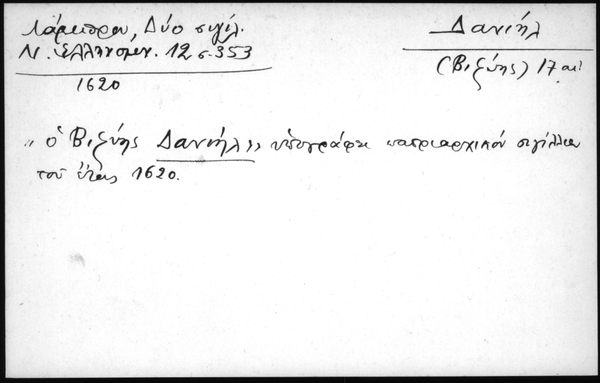 Λάμπρου, Δύο σιγίλ.
Ν. Ἑλληνομν. 12 σ. 353
1620
Δανιήλ
(Βιζύης) 17 αἰ
„ ὁ Βιζύης Δανιήλ „ ὑπογράφει πατριαρχικόν σιγίλλιον
τοῦ ἔτους 1620.